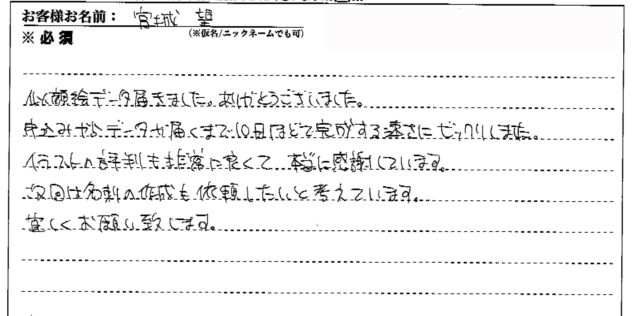 お客様お名前: 宮城 望
※必須 (※仮名/ニックネームでも可)
似顔絵データ届きました。ありがとうございました。
申込みからデータが届くまで10日ほどで完成する速さにビックリしました。
イラストの評判も非常に良くて、本当に感謝しています。
次回は名刺の作成も依頼したいと考えています。
宜しくお願い致します。